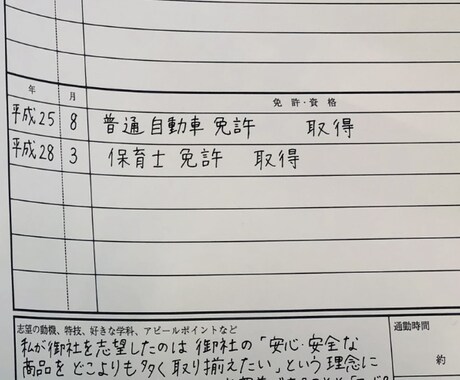 年 月 免許・資格
平成25 8 普通自動車免許 取得
平成28 3 保育士免許 取得
志望の動機、特技、好きな学科、アピールポイントなど
通勤時間
私が御社を志望したのは御社の「安心・安全な
商品をどこよりも多く取り揃えたい」という理念に
約